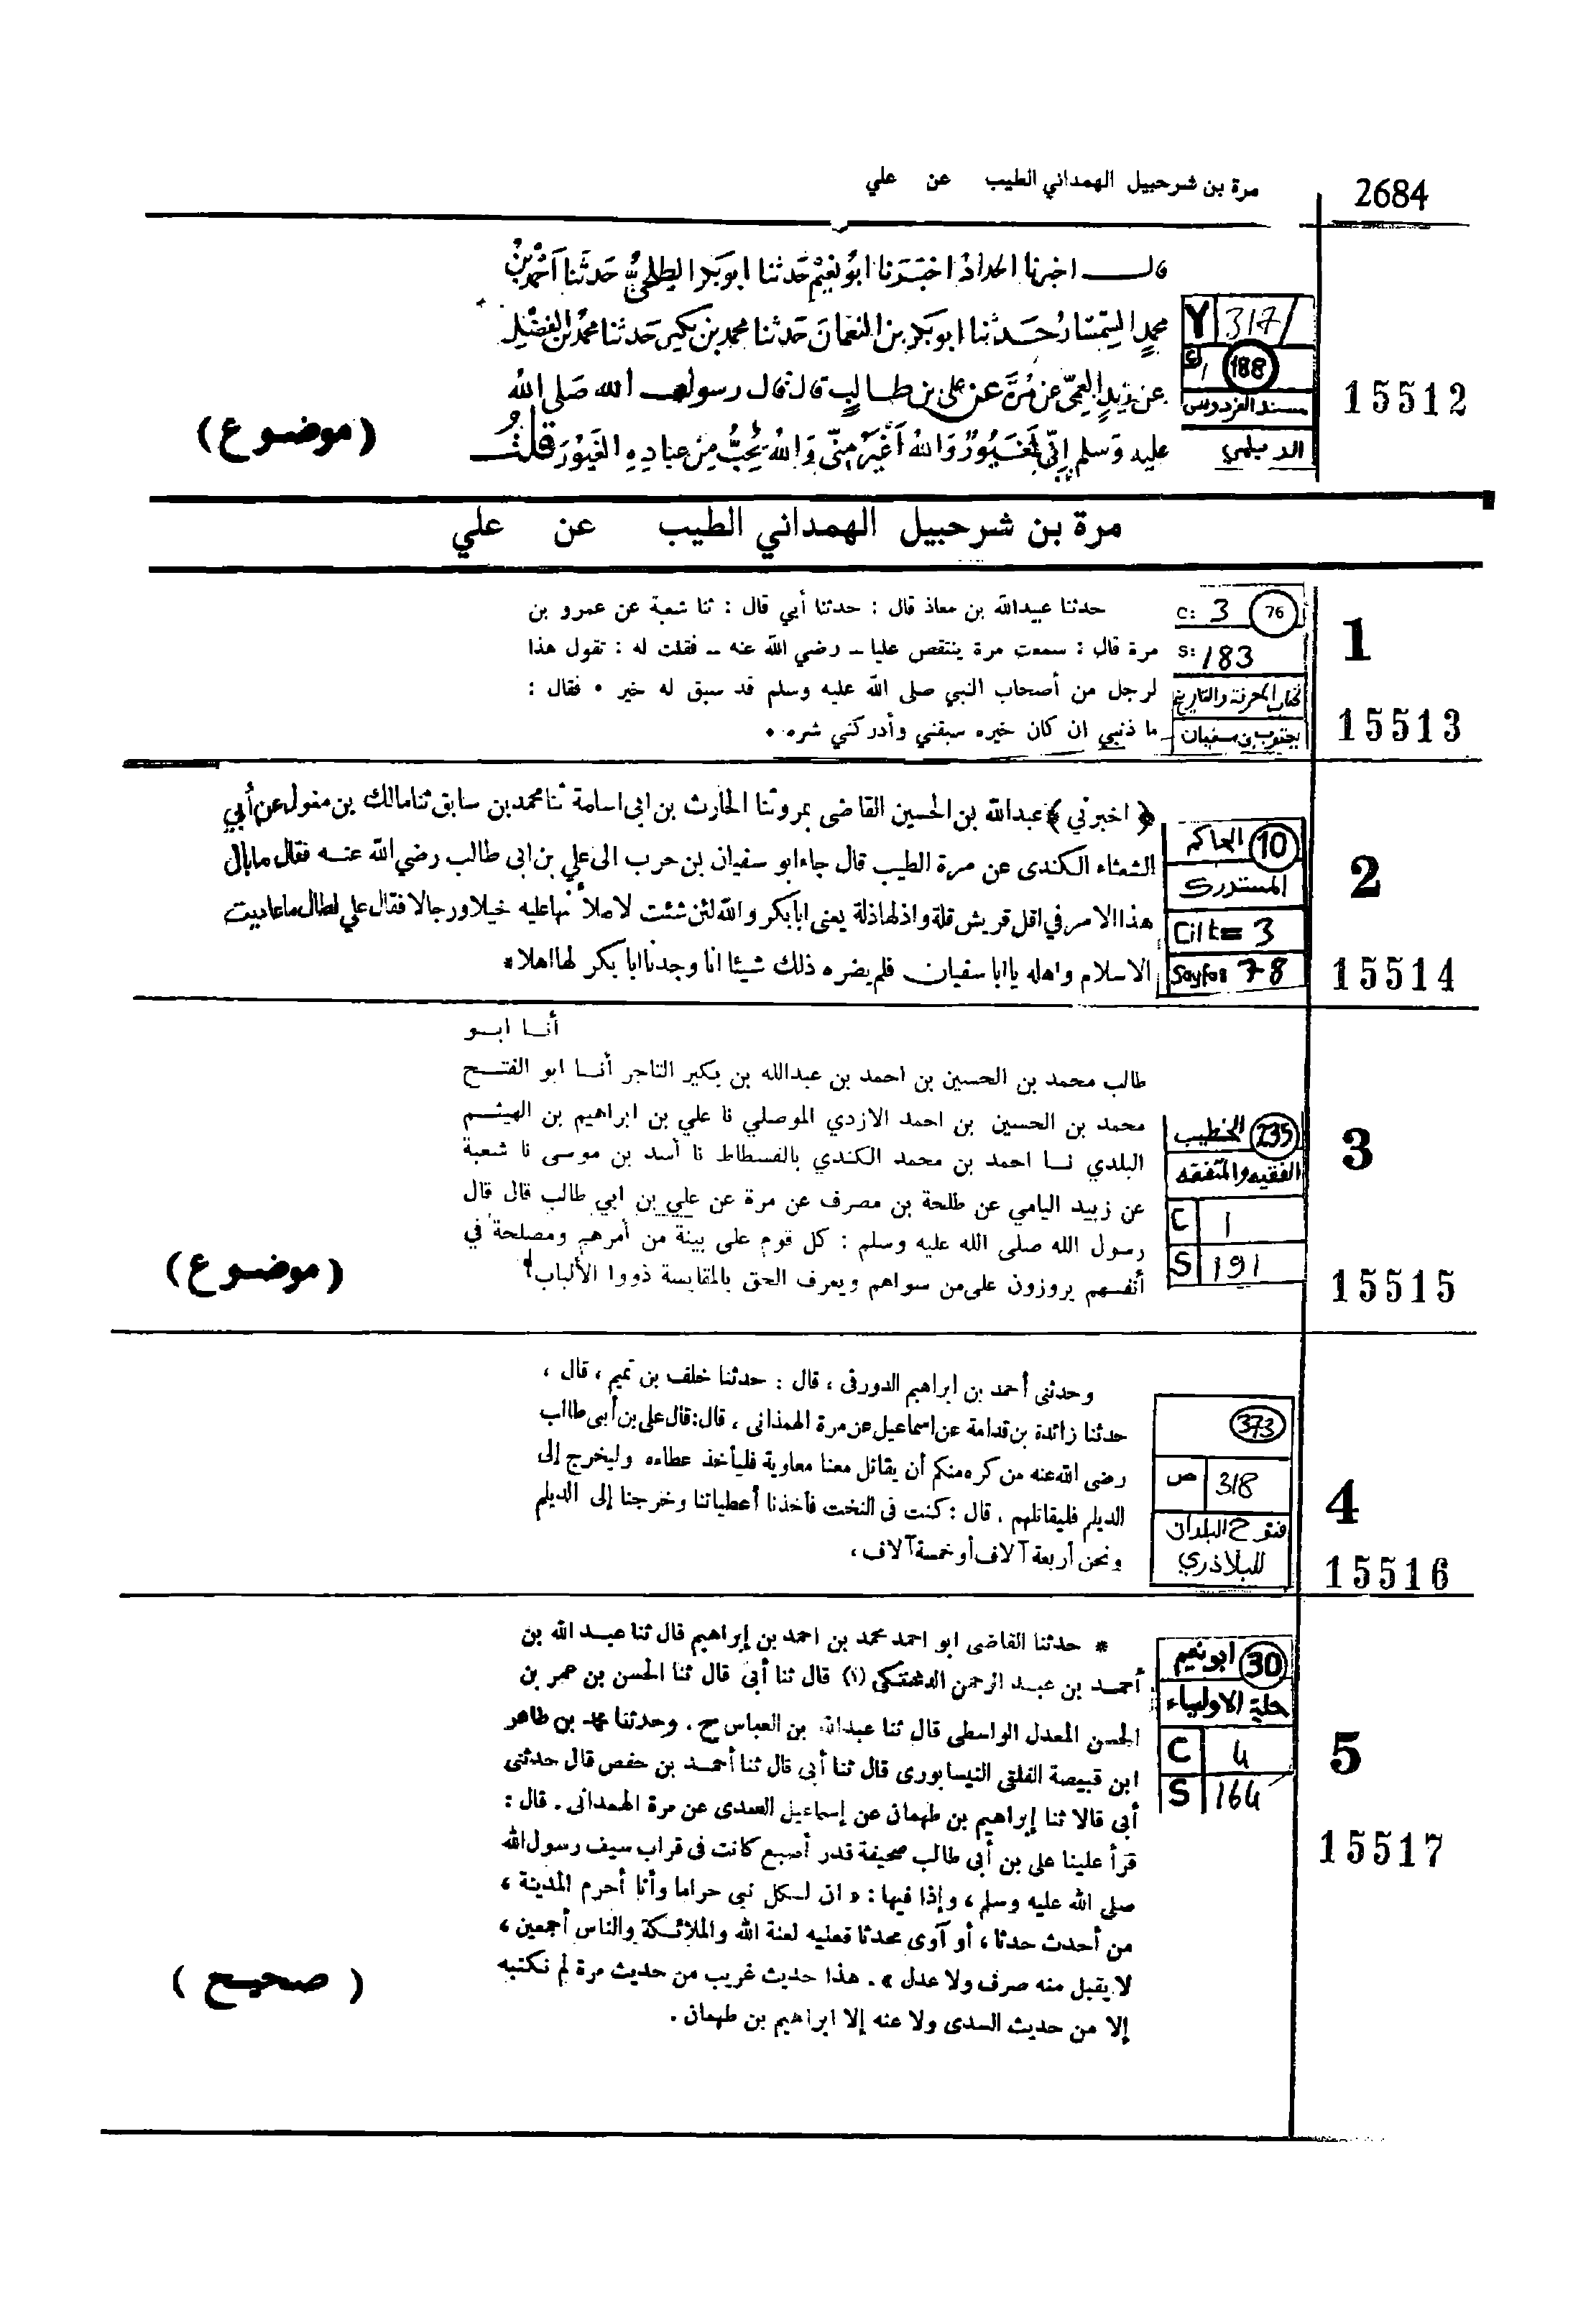 2684
مرة بن شرحبيل الهمداني الطيب عن علي
قال اخبرنا الحداد اخبرنا ابو نعيم حدثنا ابو بكر الطلحي حدثنا احمد بن
محمد حدثنا ابو بكر بن النعمان حدثنا محمد بن بكير حدثنا محمد بن الفضيل
عن زيد العمي عن مرة عن علي بن طالب قال قال رسول الله صلى الله
عليه وسلم إني لغيور والله أغير مني والله يحب من عباده الغيور قلت
Y 317/
188
مسند الفردوس
الديلمي
15512
(موضوع)
مرة بن شرحبيل الهمداني الطيب عن علي
1
C: 3 76
S: 183
كتاب المعرفة والتاريخ
يعقوب بن سفيان
15513
حدثنا عبيدالله بن معاذ قال : حدثنا أبي قال : ثنا شعبة عن عمرو بن
مرة قال : سمعت مرة ينتقص عليا - رضي الله عنه - فقلت له : تقول هذا
لرجل من أصحاب النبي صلى الله عليه وسلم قد سبق له خير . فقال :
ما ذنبي ان كان خيره سبقني وأدركني شره .
2
الحاكم 10
المستدرك
Cilt= 3
Sayfa: 78
15514
﴿ اخبرني ﴾ عبدالله بن الحسين القاضى بمرو ثنا الحارث بن ابى اسامة ثنا محمد بن سابق ثنا مالك بن مغول عن أبي
الشعثاء الكندى عن مرة الطيب قال جاء ابو سفيان بن حرب الى علي بن ابى طالب رضي الله عنه فقال ما بال
هذا الامر في اقل قريش قلة واذلها ذلة يعنى ابا بكر والله لئن شئت لاملأنها عليه خيلا ورجالا فقال علي لطال ما عاديت
الاسلام واهله يا ابا سفيان فلم يضره ذلك شيئا انا وجدنا ابا بكر لها اهلا*
3
الخطيب 235
الفقيه والمتفقه
C 1
S 191
15515
(موضوع)
أنا ابو
طالب محمد بن الحسين بن احمد بن عبدالله بن بكير التاجر أنا ابو الفتح
محمد بن الحسين بن احمد الازدي الموصلي نا علي بن ابراهيم بن الهيثم
البلدي نا احمد بن محمد الكندي بالفسطاط نا أسد بن موسى نا شعبة
عن زبيد اليامي عن طلحة بن مصرف عن مرة عن علي بن ابي طالب قال قال
رسول الله صلى الله عليه وسلم : كل قوم على بينة من أمرهم ومصلحة في
أنفسهم يروزون على من سواهم ويعرف الحق بالمقايسة ذووا الألباب
4
373
ص 318
فتوح البلدان
للبلاذري
15516
وحدثنى أحمد بن ابراهيم الدورقى ، قال : حدثنا خلف بن تميم ، قال ،
حدثنا زائدة بن قدامة عن اسماعيل عن مرة الهمذانى ، قال : قال على بن أبى طالب
رضى الله عنه من كره منكم أن يقاتل معنا معاوية فليأخذ عطاءه وليخرج إلى
الديلم فليقاتلهم ، قال : كنت فى النخب فأخذنا أعطياتنا وخرجنا إلى الديلم
ونحن أربعة آلاف أو خمسة آلاف ،
5
ابو نعيم 30
حلية الاولياء
C 4
S 164
15517
(صحيح)
* حدثنا القاضى ابو احمد محمد بن احمد بن إبراهيم قال ثنا عبد الله بن
أحمد بن عبد الرحمن الدشتكى (١) قال ثنا أبى قال ثنا الحسن بن عمر بن
الحسن المعدل الواسطى قال ثنا عبدالله بن العباس ح . وحدثنا محمد بن طاهر
ابن قبيصة الفلقى النيسابورى قال ثنا أبى قال ثنا أحمد بن حفص قال حدثنى
أبى قالا ثنا إبراهيم بن طهمان عن إسماعيل السدى عن مرة الهمدانى . قال :
قرأ علينا على بن أبى طالب صحيفة قدر أصبع كانت فى قراب سيف رسول الله
صلى الله عليه وسلم ، وإذا فيها : « ان لكل نبى حراما وأنا أحرم المدينة ،
من أحدث حدثا ، أو آوى محدثا فعليه لعنة الله والملائكة والناس أجمعين ،
لا يقبل منه صرف ولا عدل » . هذا حديث غريب من حديث مرة لم نكتبه
إلا من حديث السدى ولا عنه إلا ابراهيم بن طهمان .